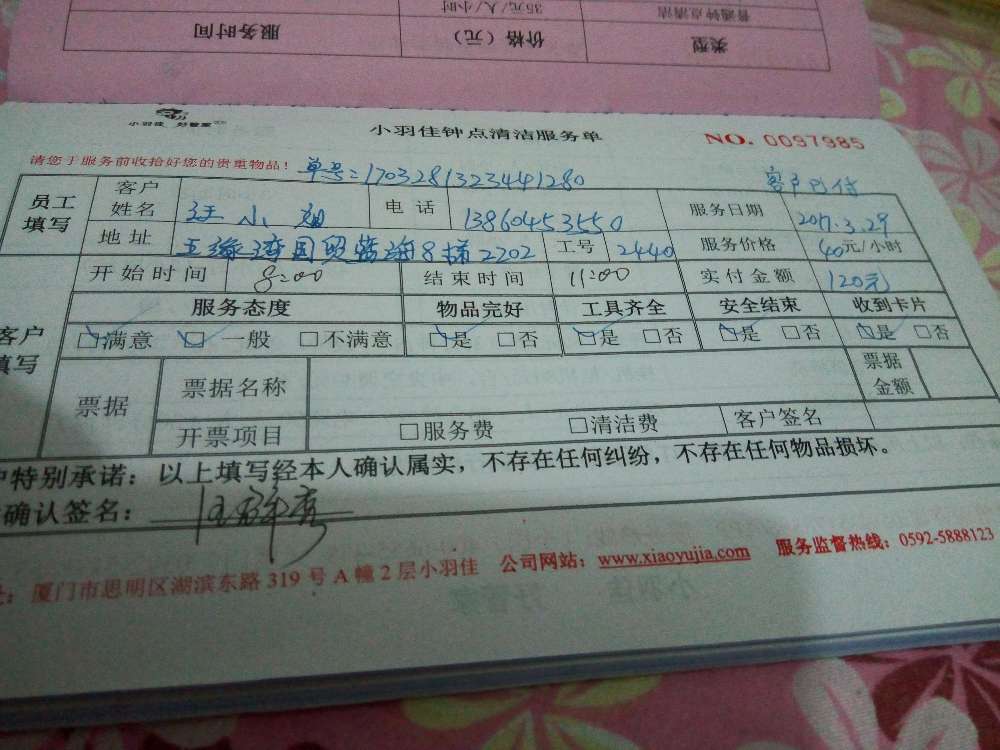 普通钟点清洁 35元/人/小时
类型 价格（元） 服务时间
小羽佳 好管家
小羽佳钟点清洁服务单 NO. 0097985
请您于服务前收拾好您的贵重物品！ 单号:1703281323441280 客户已付
员工填写 客户姓名 汪小姐 电话 13860453550 服务日期 2017.3.29
地址 五缘湾国贸蓝海8梯2702 工号 2440 服务价格 40元/小时
开始时间 8:00 结束时间 11:00 实付金额 120元
客户填写 服务态度 物品完好 工具齐全 安全结束 收到卡片
☑满意 ☑一般 □不满意 ☑是 □否 ☑是 □否 ☑是 □否 ☑是 □否
票据 票据名称 票据金额
开票项目 □服务费 □清洁费 客户签名
户特别承诺：以上填写经本人确认属实，不存在任何纠纷，不存在任何物品损坏。
确认签名：
厦门市思明区湖滨东路319号A幢2层小羽佳 公司网站：www.xiaoyujia.com 服务监督热线：0592-5888123